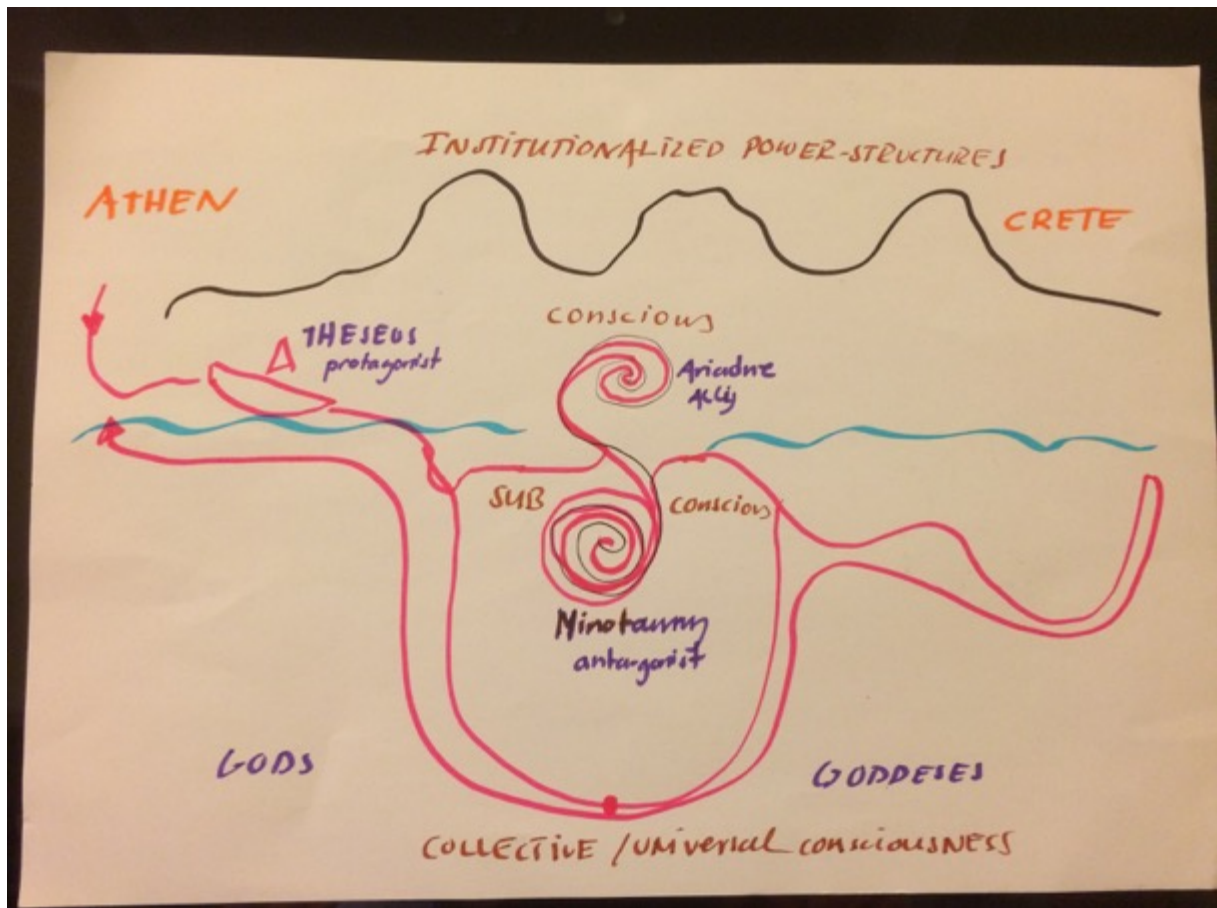 INSTITUTIONALIZED POWER-STRUCTURES
ATHEN
CRETE
CONSCIOUS
THESEUS
protagonist
Ariadne
Ally
SUB
CONSCIOUS
Minotaurus
antagonist
GODS
GODDESES
COLLECTIVE / UNIVERSAL CONSCIOUSNESS